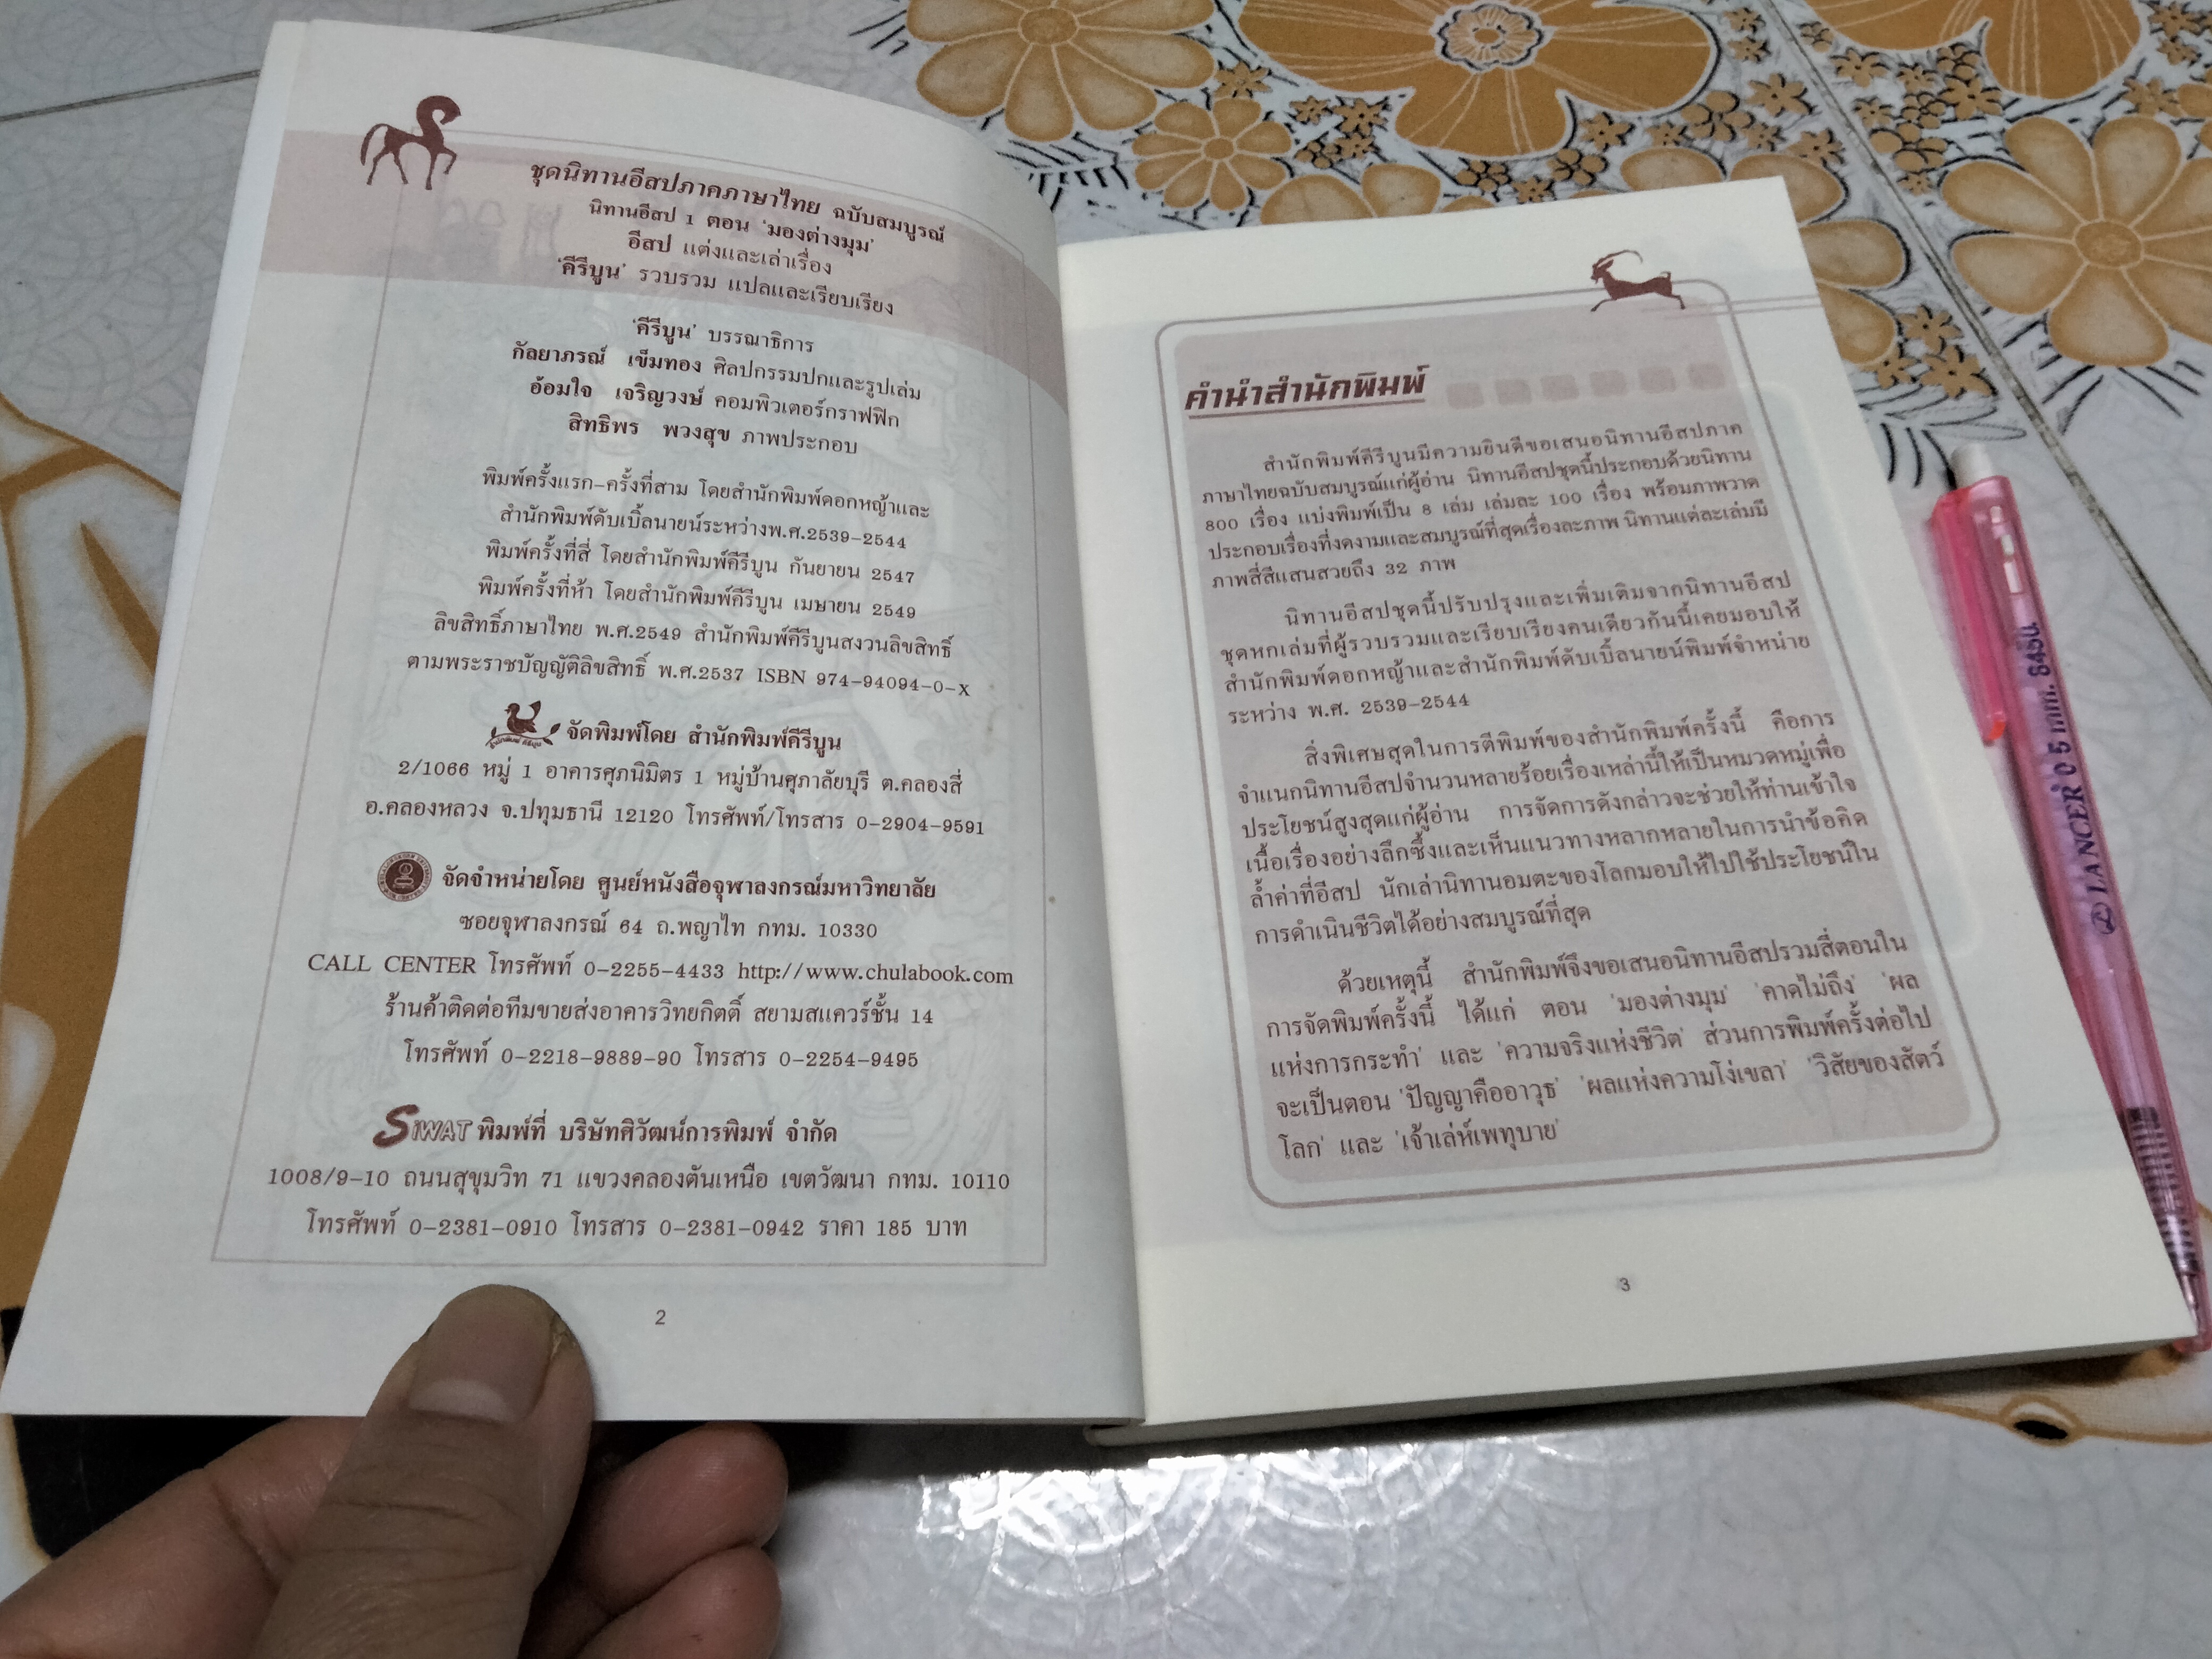 ชุดนิทานอีสปภาคภาษาไทย ฉบับสมบูรณ์
นิทานอีสป 1 ตอน 'มองต่างมุม'
อีสป แต่งและเล่าเรื่อง
'คีรีบูน' รวบรวม แปลและเรียบเรียง
'คีรีบูน' บรรณาธิการ
กัลยาภรณ์ เข็มทอง ศิลปกรรมปกและรูปเล่ม
อ้อมใจ เจริญวงษ์ คอมพิวเตอร์กราฟฟิก
สิทธิพร พวงสุข ภาพประกอบ
พิมพ์ครั้งแรก-ครั้งที่สาม โดยสำนักพิมพ์ดอกหญ้าและ
สำนักพิมพ์ดับเบิ้ลนายน์ระหว่างพ.ศ.2539-2544
พิมพ์ครั้งที่สี่ โดยสำนักพิมพ์คีรีบูน กันยายน 2547
พิมพ์ครั้งที่ห้า โดยสำนักพิมพ์คีรีบูน เมษายน 2549
ลิขสิทธิ์ภาษาไทย พ.ศ.2549 สำนักพิมพ์คีรีบูนสงวนลิขสิทธิ์
ตามพระราชบัญญัติลิขสิทธิ์ พ.ศ.2537 ISBN 974-94094-0-X
จัดพิมพ์โดย สำนักพิมพ์คีรีบูน
2/1066 หมู่ 1 อาคารศุภนิมิตร 1 หมู่บ้านศุภาลัยบุรี ต.คลองสี่
อ.คลองหลวง จ.ปทุมธานี 12120 โทรศัพท์/โทรสาร 0-2904-9591
จัดจำหน่ายโดย ศูนย์หนังสือจุฬาลงกรณ์มหาวิทยาลัย
ซอยจุฬาลงกรณ์ 64 ถ.พญาไท กทม. 10330
CALL CENTER โทรศัพท์ 0-2255-4433 http://www.chulabook.com
ร้านค้าติดต่อทีมขายส่งอาคารวิทยกิตติ์ สยามสแควร์ชั้น 14
โทรศัพท์ 0-2218-9889-90 โทรสาร 0-2254-9495
SIWAT พิมพ์ที่ บริษัทศิวัฒน์การพิมพ์ จำกัด
1008/9-10 ถนนสุขุมวิท 71 แขวงคลองตันเหนือ เขตวัฒนา กทม. 10110
โทรศัพท์ 0-2381-0910 โทรสาร 0-2381-0942 ราคา 185 บาท
2
คำนำสำนักพิมพ์
สำนักพิมพ์คีรีบูนมีความยินดีขอเสนอนิทานอีสปภาค
ภาษาไทยฉบับสมบูรณ์แก่ผู้อ่าน นิทานอีสปชุดนี้ประกอบด้วยนิทาน
800 เรื่อง แบ่งพิมพ์เป็น 8 เล่ม เล่มละ 100 เรื่อง พร้อมภาพวาด
ประกอบเรื่องที่งดงามและสมบูรณ์ที่สุดเรื่องละภาพ นิทานแต่ละเล่มมี
ภาพสี่สีแสนสวยถึง 32 ภาพ
นิทานอีสปชุดนี้ปรับปรุงและเพิ่มเติมจากนิทานอีสป
ชุดหกเล่มที่ผู้รวบรวมและเรียบเรียงคนเดียวกันนี้เคยมอบให้
สำนักพิมพ์ดอกหญ้าและสำนักพิมพ์ดับเบิ้ลนายน์พิมพ์จำหน่าย
ระหว่าง พ.ศ. 2539-2544
สิ่งพิเศษสุดในการตีพิมพ์ของสำนักพิมพ์ครั้งนี้ คือการ
จำแนกนิทานอีสปจำนวนหลายร้อยเรื่องเหล่านี้ให้เป็นหมวดหมู่เพื่อ
ประโยชน์สูงสุดแก่ผู้อ่าน การจัดการดังกล่าวจะช่วยให้ท่านเข้าใจ
เนื้อเรื่องอย่างลึกซึ้งและเห็นแนวทางหลากหลายในการนำข้อคิด
ล้ำค่าที่อีสป นักเล่านิทานอมตะของโลกมอบให้ไปใช้ประโยชน์ใน
การดำเนินชีวิตได้อย่างสมบูรณ์ที่สุด
ด้วยเหตุนี้ สำนักพิมพ์จึงขอเสนอนิทานอีสปรวมสี่ตอนใน
การจัดพิมพ์ครั้งนี้ ได้แก่ ตอน 'มองต่างมุม' 'คาดไม่ถึง' 'ผล
แห่งการกระทำ' และ 'ความจริงแห่งชีวิต' ส่วนการพิมพ์ครั้งต่อไป
จะเป็นตอน 'ปัญญาคืออาวุธ' 'ผลแห่งความโง่เขลา' 'วิสัยของสัตว์
โลก' และ 'เจ้าเล่ห์เพทุบาย'
3
LANCER 0.5 mm. 845น